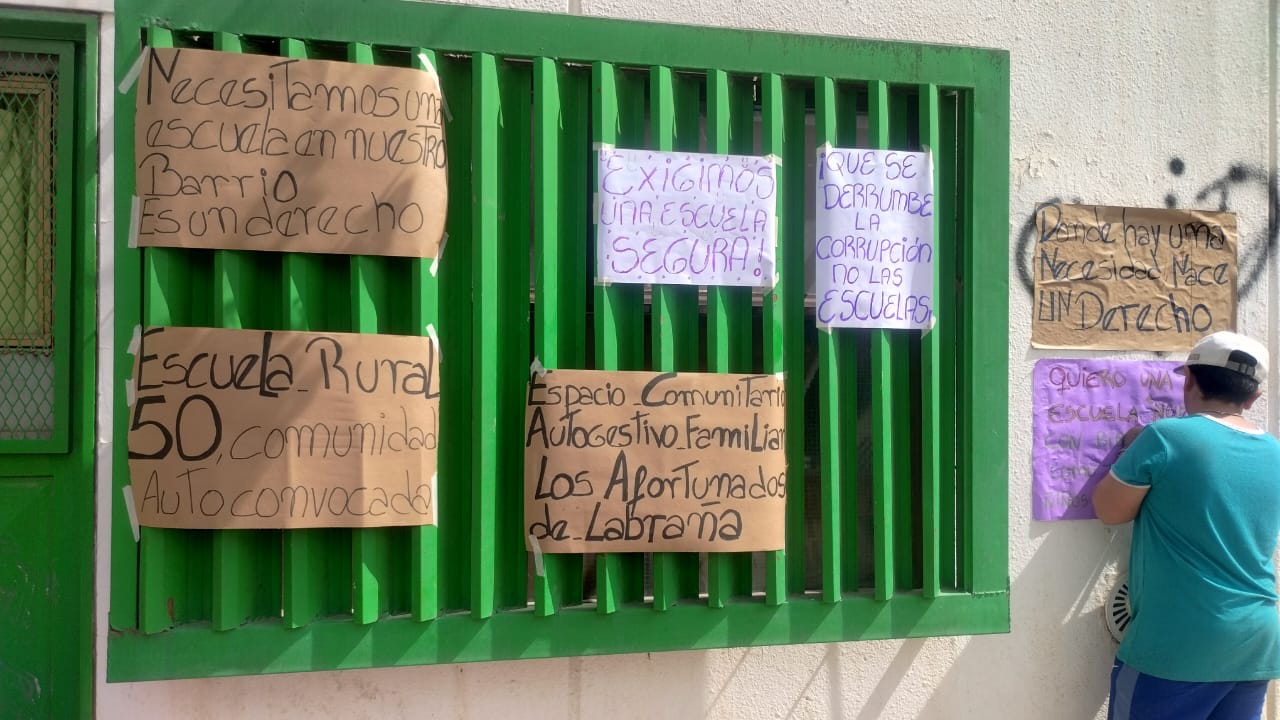 Necesitamos una
escuela en nuestro
Barrio
Es un derecho
Escuela Rural
50, comunidad
Autoconvocada
EXIGIMOS
UNA ESCUELA
SEGURA!
¡QUE SE
DERRUMBE
LA
CORRUPCIÓN
NO LAS
ESCUELAS.
Espacio Comunitario
Autogestivo Familiar
Los Afortunados
de Labraña
Donde hay una
Necesidad Nace
UN Derecho
QUIERO UNA
ESCUELA
CON